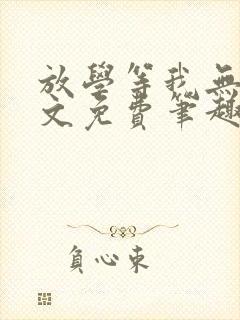 放學等我無
文免費筆趣
負心東